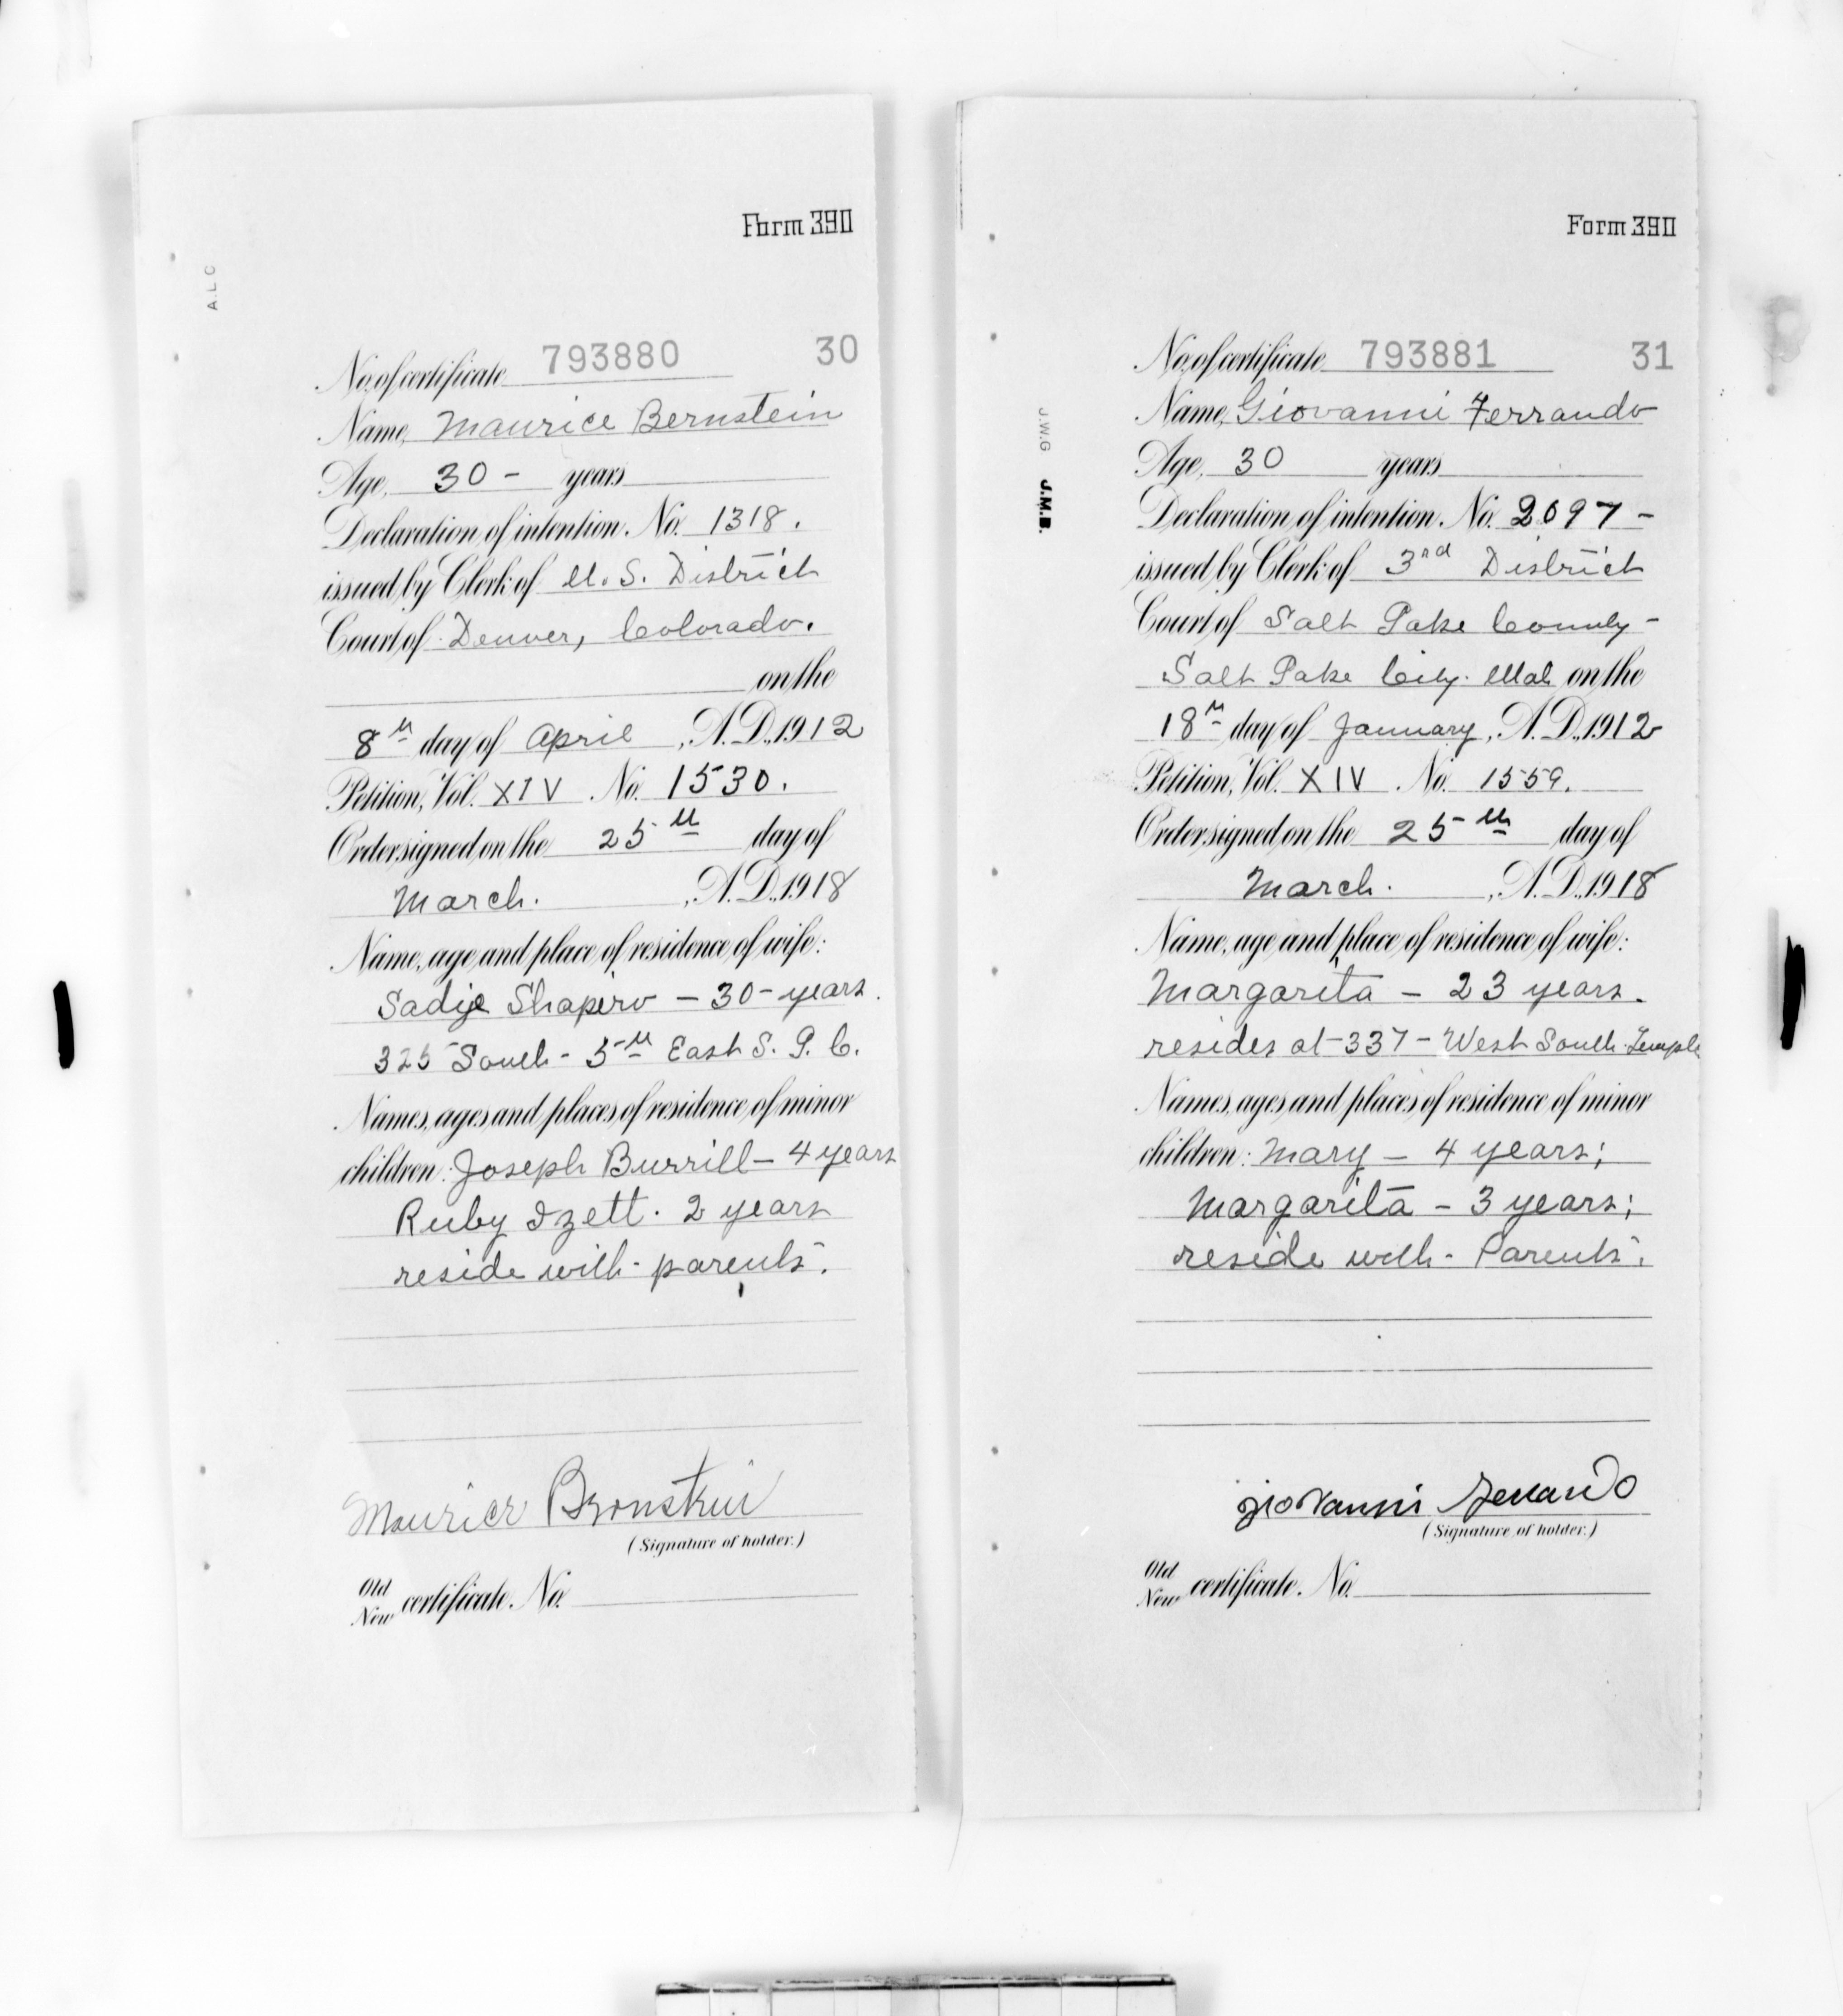 Form 390
A.L.C
No. of certificate 793880 30
Name, Maurice Bernstein
Age, 30 - years
Declaration of intention. No. 1318.
issued by Clerk of U.S. District
Court of Denver, Colorado.
on the
8th day of April, A.D., 1912
Petition, Vol. XIV No. 1530.
Order signed on the 25th day of
March., A.D., 1918
Name, age and place of residence of wife:
Sadye Shapiro - 30 - years.
325 South - 5th East S. L. C.
Names, ages and places of residence of minor
children: Joseph Burrill - 4 years
Ruby Izett. 2 years
reside with - parents.
Maurice Bronstein
(Signature of holder.)
Old
New certificate. No.
Form 390
J.W.G J.M.B.
No. of certificate 793881 31
Name, Giovanni Ferrando
Age, 30 years
Declaration of intention. No. 2097 -
issued by Clerk of 3rd District
Court of Salt Lake County -
Salt Lake City. Utah on the
18th day of January, A.D., 1912
Petition, Vol. XIV. No. 1559.
Order signed on the 25th day of
March., A.D., 1918
Name, age and place of residence of wife:
Margarita - 23 years.
resides at - 337 - West South Temple
Names, ages and places of residence of minor
children: Mary - 4 years;
Margarita - 3 years;
reside with - Parents.
Giovanni Ferrando
(Signature of holder.)
Old
New certificate. No.